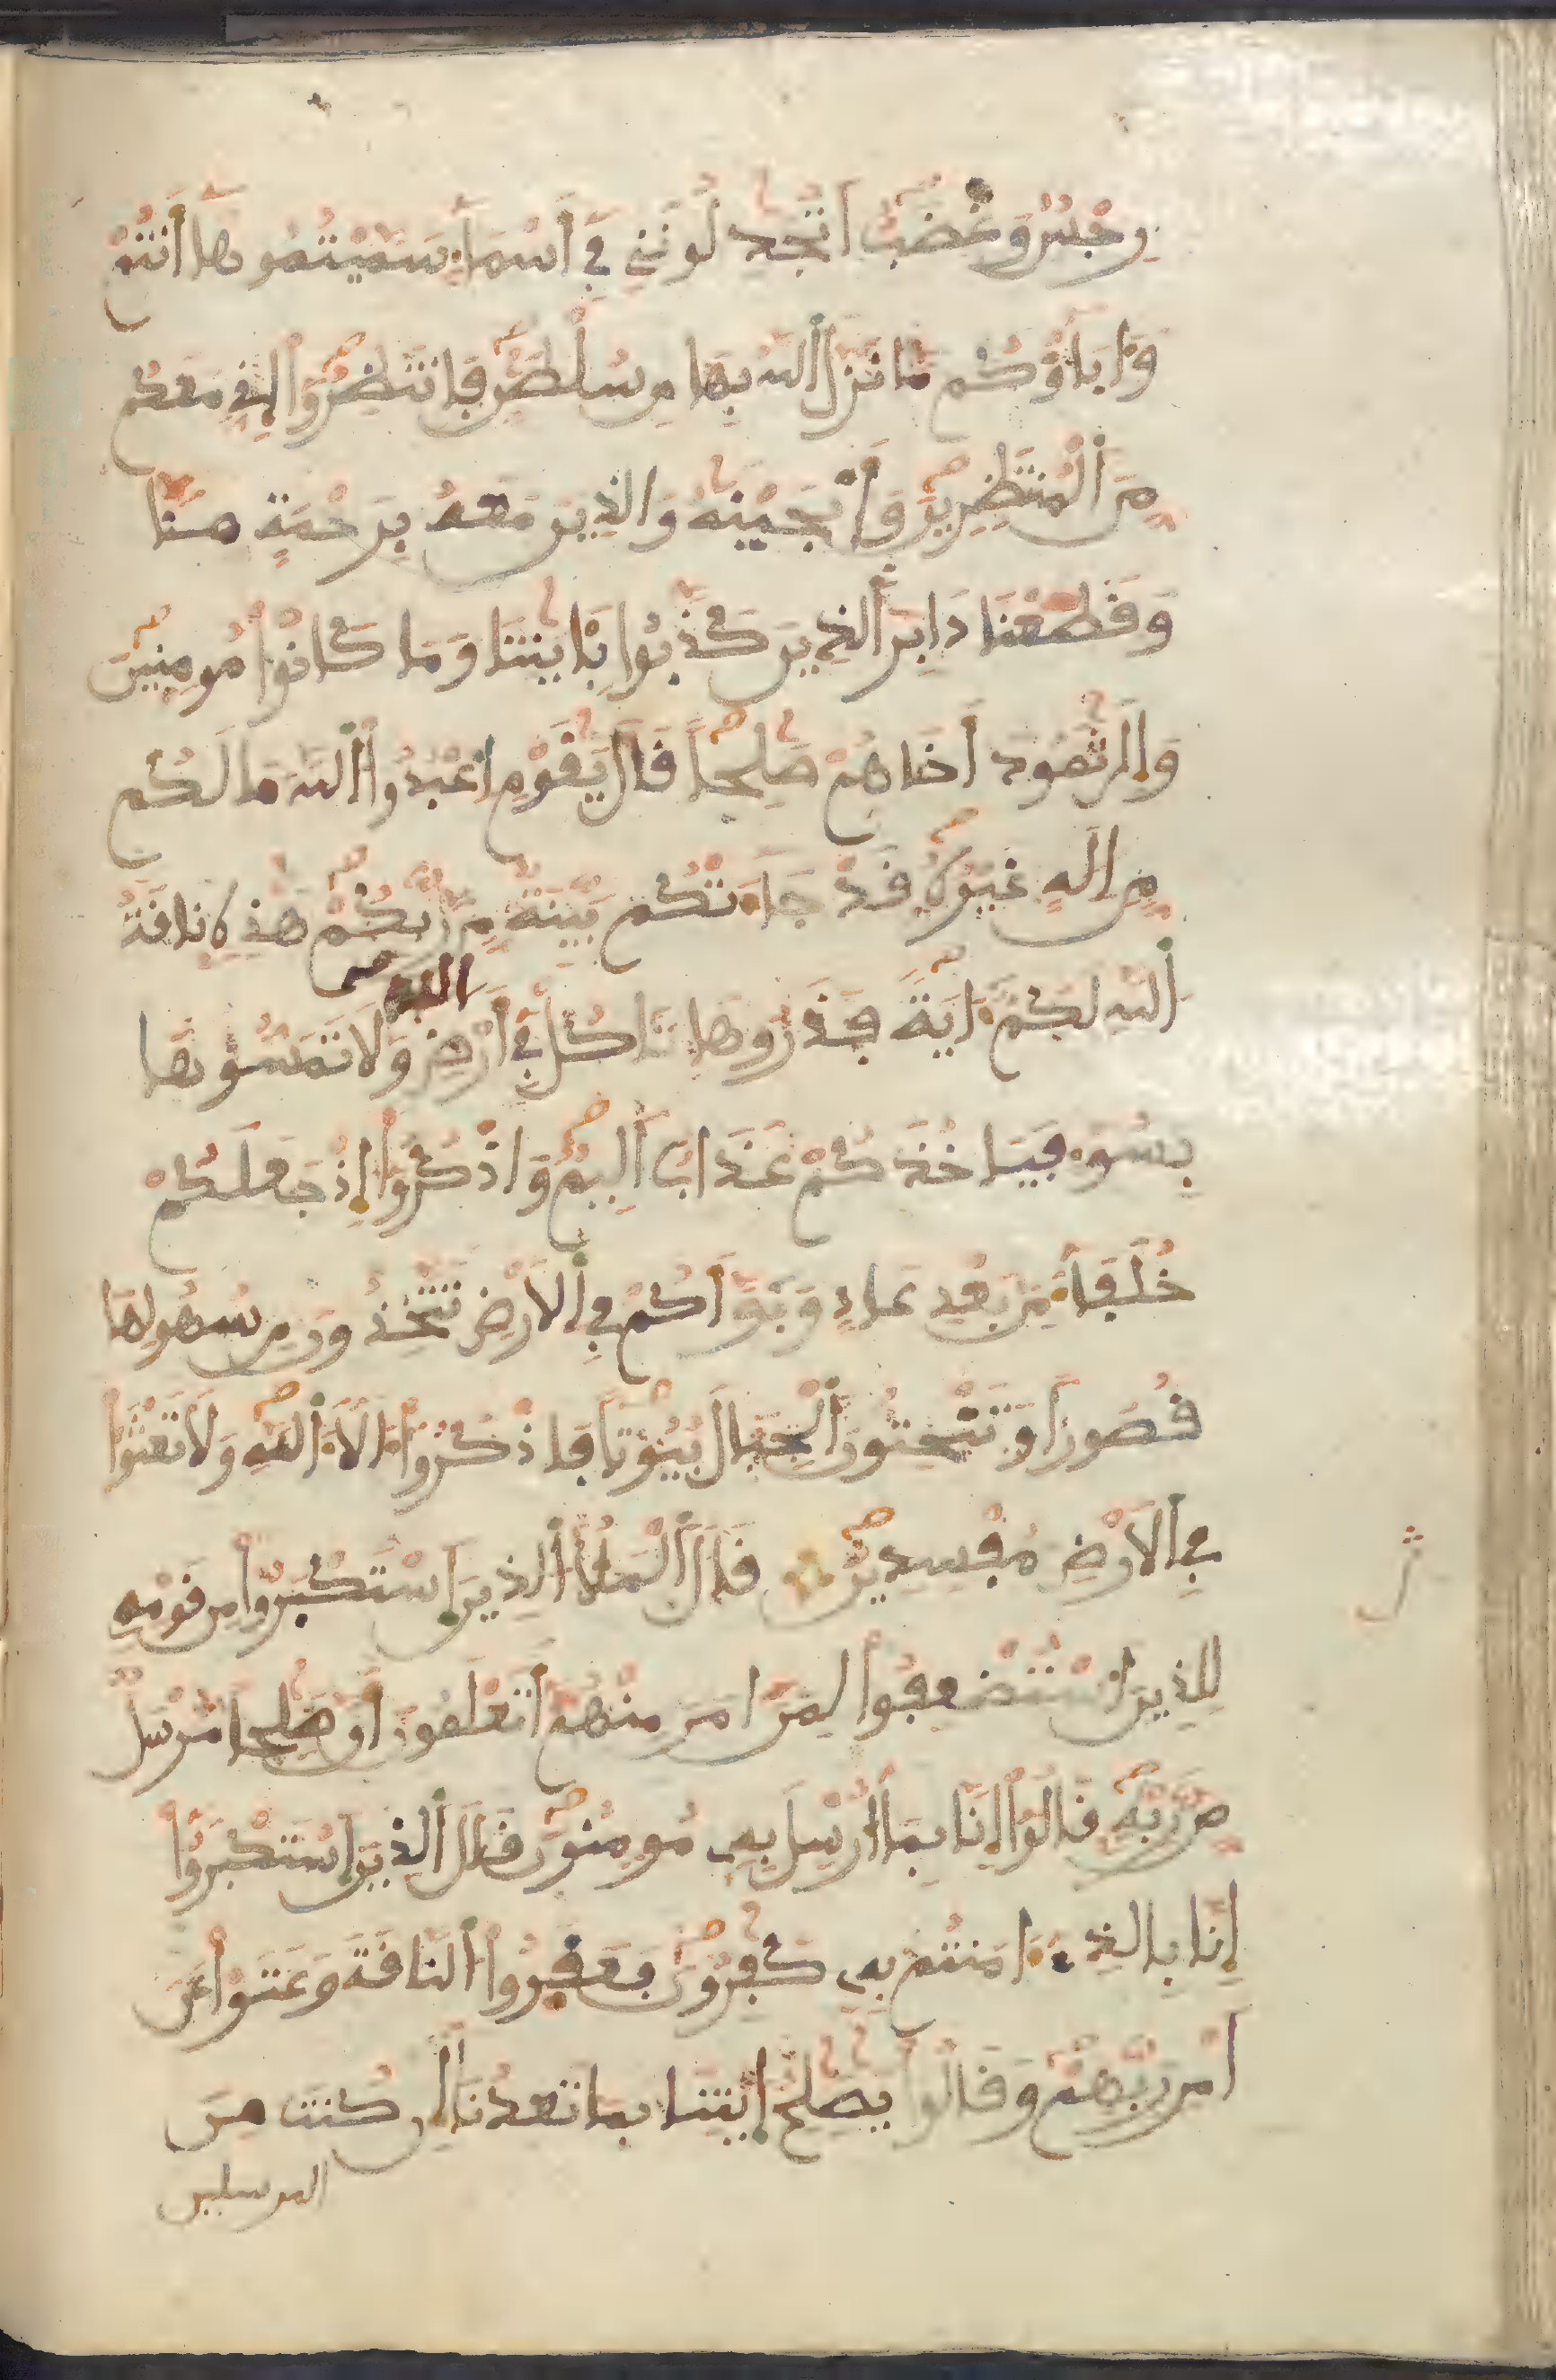 رِجْسٌ وَغَضَبٌ اَتُجَٰدِلُونَنِي فِي أَسْمَآءٍ سَمَّيْتُمُوهَا أَنتُمْ
وَءَابَآؤُكُم مَّا نَزَّلَ اَللَّهُ بِهَا مِن سُلْطَٰنٍ فَانتَظِرُوٓا إِنِّي مَعَكُم
مِّنَ اَلْمُنتَظِرِينَ فَأَنجَيْنَٰهُ وَالَّذِينَ مَعَهُ بِرَحْمَةٍ مِّنَّا
وَقَطَعْنَا دَابِرَ اَلَّذِينَ كَذَّبُوا بِـَٔايَٰتِنَا وَمَا كَانُوا مُومِنِينَ
وَإِلَىٰ ثَمُودَ أَخَاهُمْ صَٰلِحاً قَالَ يَٰقَوْمِ اِعْبُدُوا اَللَّهَ مَا لَكُم
مِّنِ اِلَٰهٍ غَيْرُهُ قَدْ جَآءَتْكُم بَيِّنَةٌ مِّن رَّبِّكُمْ هَٰذِهِ نَاقَةُ
اَللَّهِ لَكُمْ ءَايَةً فَذَرُوهَا تَاكُلْ فِي أَرْضِ اللَّهِ وَلَا تَمَسُّوهَا
بِسُوٓءٍ فَيَاخُذَكُمْ عَذَابٌ أَلِيمٌ وَاذْكُرُوٓا إِذْ جَعَلَكُمْ
خُلَفَآءَ مِن بَعْدِ عَادٍ وَبَوَّأَكُمْ فِي اِلَارْضِ تَتَّخِذُونَ مِن سُهُولِهَا
قُصُوراً وَتَنْحِتُونَ اَلْجِبَالَ بُيُوتاً فَاذْكُرُوٓا ءَالَآءَ اَللَّهِ وَلَا تَعْثَوْا
فِي اِلَارْضِ مُفْسِدِينَ قَالَ اَلْمَلَأُ اَلَّذِينَ اَسْتَكْبَرُوا مِن قَوْمِهِ
لِلَّذِينَ اَسْتُضْعِفُوا لِمَنَ اٰمَنَ مِنْهُمْ أَتَعْلَمُونَ أَنَّ صَٰلِحاً مُّرْسَلٌ
مِّن رَّبِّهِ قَالُوٓا إِنَّا بِمَآ أُرْسِلَ بِهِ مُومِنُونَ قَالَ اَلَّذِينَ اَسْتَكْبَرُوٓا
إِنَّا بِالَّذِي ءَامَنتُم بِهِ كَٰفِرُونَ فَعَقَرُوا اَلنَّاقَةَ وَعَتَوْا عَنَ
اَمْرِ رَبِّهِمْ وَقَالُوا يَٰصَٰلِحُ اِيتِنَا بِمَا تَعِدُنَآ إِن كُنتَ مِنَ
المرسلين